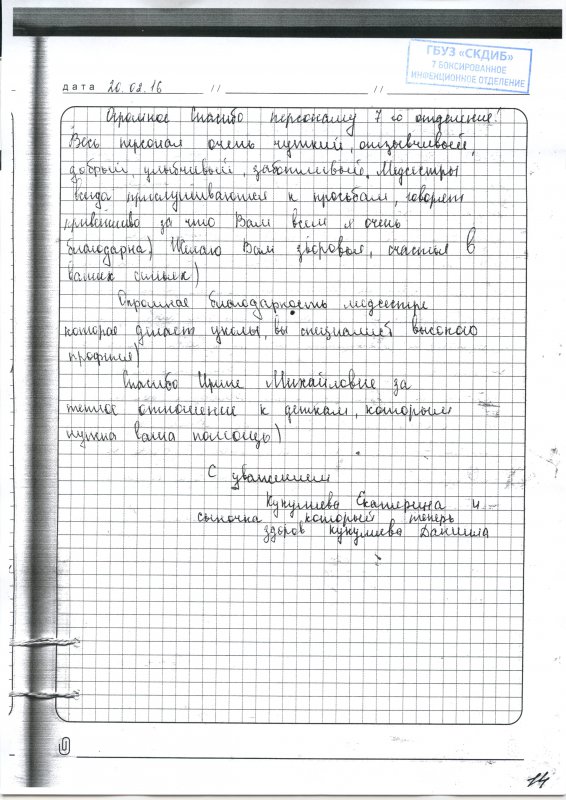 ГБУЗ «СКДИБ»
7 БОКСИРОВАННОЕ
ИНФЕКЦИОННОЕ ОТДЕЛЕНИЕ
дата 20.02.16 // //
Огромное Спасибо персоналу 7-го отделения!
Весь персонал очень чуткий, отзывчивый,
добрый, улыбчивый, заботливый. Медсестры
всегда прислушиваются к просьбам, говорят
приветливо за что Вам всем я очень
благодарна) Желаю Вам здоровья, счастья в
ваших семьях)
Огромная благодарность медсестре
которая делает уколы, вы специалист высокого
профиля)
Спасибо Ирине Михайловне за
теплое отношение к деткам, которым
нужна ваша помощь)
С уважением
Екатерина и
сыночка который теперь
здоров Даниила
14